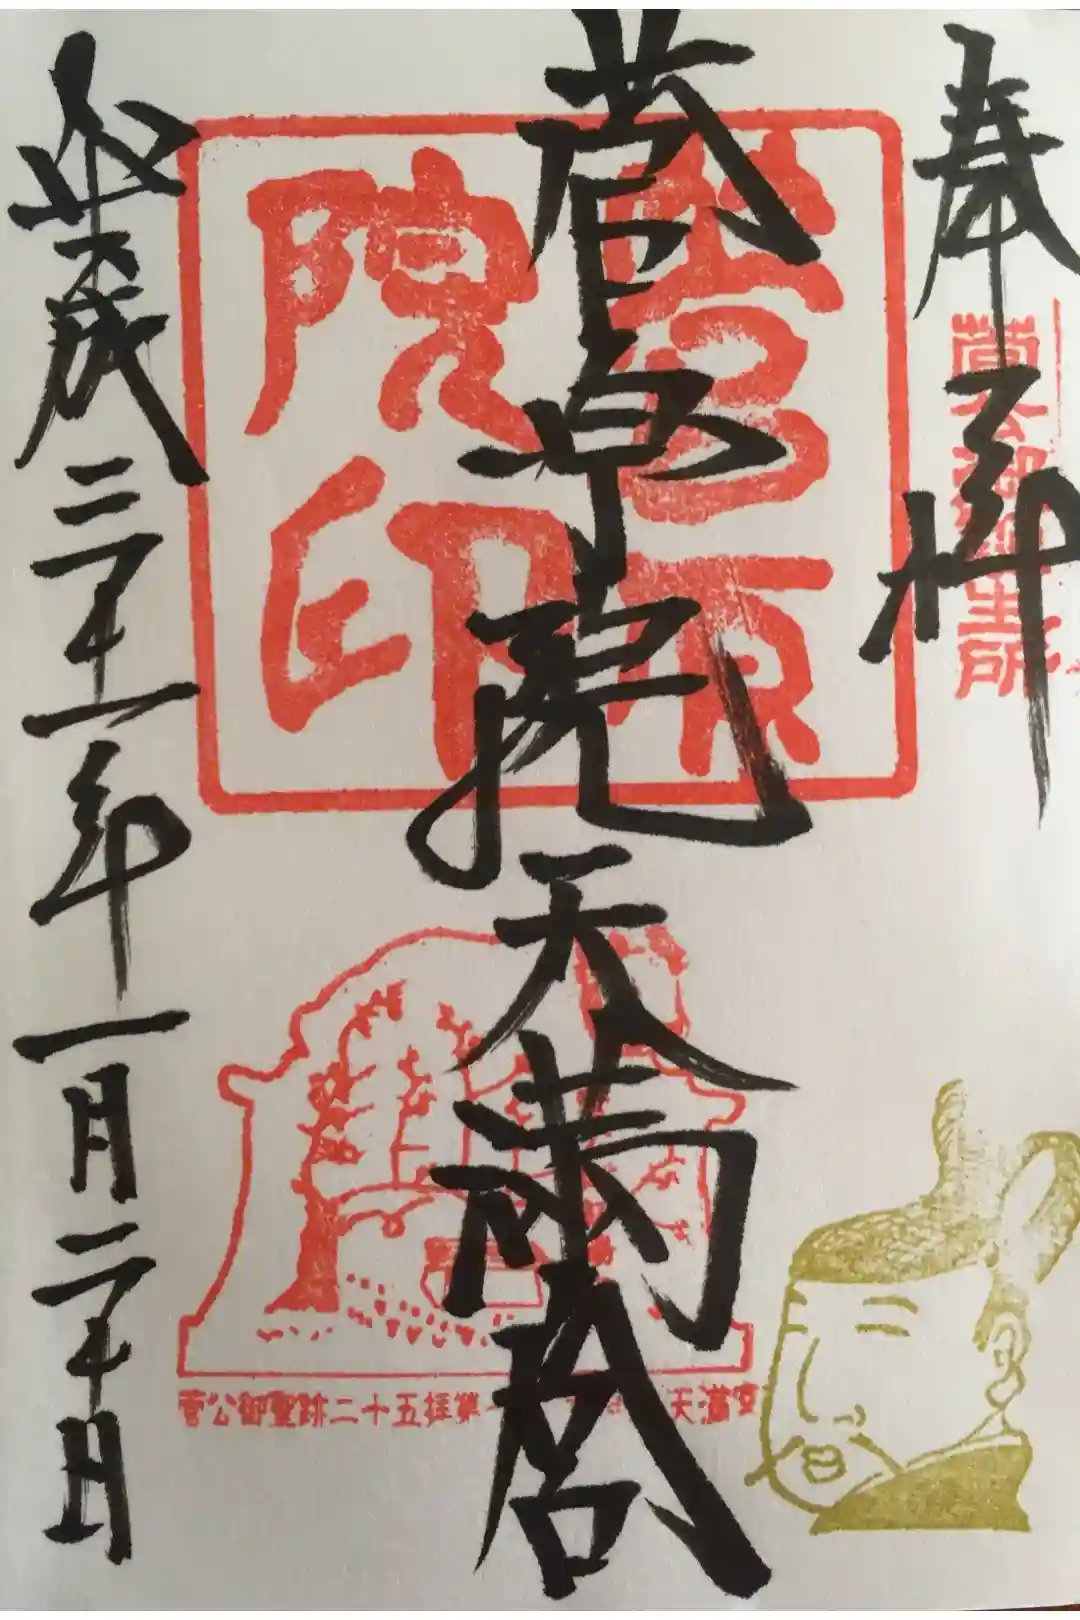 奉拝
菅公御誕生所
菅原院天満宮
菅原院印
平成三十一年一月二十日
菅公御聖跡二十五拝第 天満宮